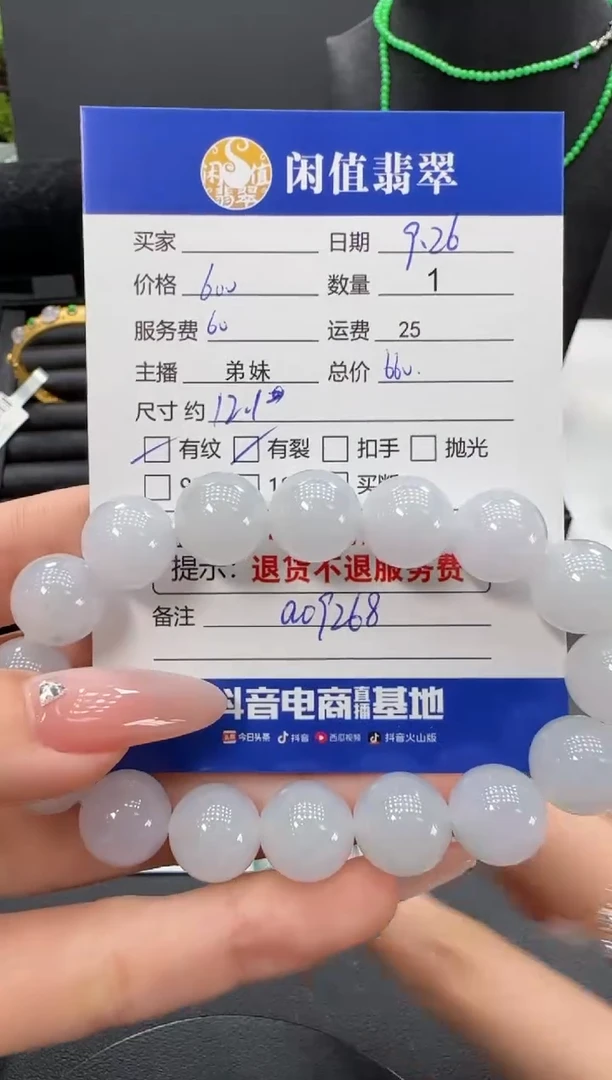 闲值翡翠
闲值翡翠
买家 日期 9.26
价格 600 数量 1
服务费 60 运费 25
主播 弟妹 总价 660.
尺寸 约 12.1
有纹 有裂 扣手 抛光
买断
提示：退货不退服务费
备注 a09268
抖音电商直播基地
今日头条 抖音 西瓜视频 抖音火山版